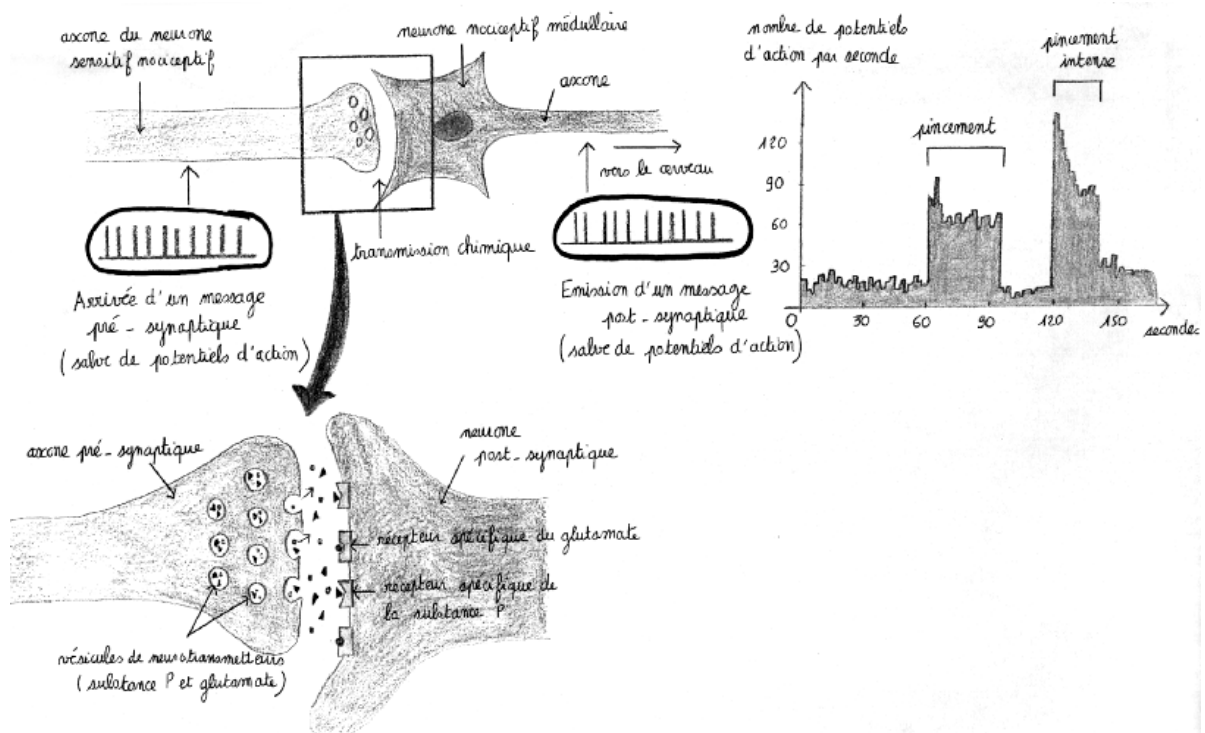 axone du neurone
sensitif nociceptif
neurone nociceptif médullaire
axone
vers le cerveau
transmission chimique
Arrivée d'un message
pré-synaptique
(salve de potentiels d'action)
Emission d'un message
post-synaptique
(salve de potentiels d'action)
nombre de potentiels
d'action par seconde
pincement
intense
pincement
120
90
60
30
0 30 60 90 120 150
secondes
axone pré-synaptique
neurone
post-synaptique
récepteur spécifique du glutamate
récepteur spécifique de
la substance P
vésicules de neurotransmetteurs
(substance P et glutamate)